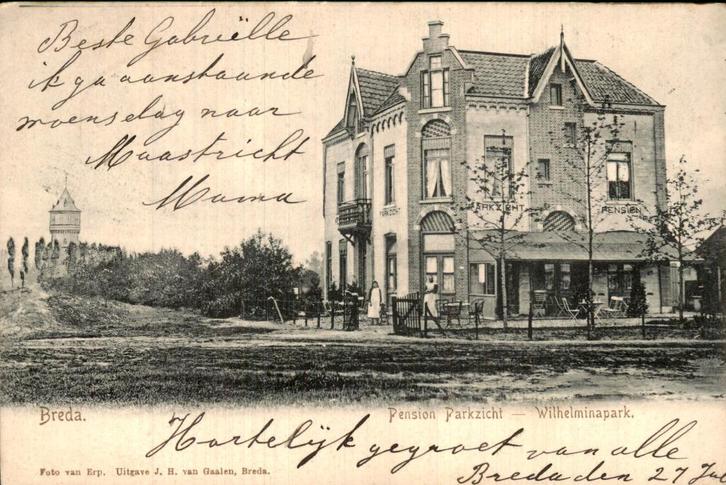 Beste Gabriëlle
ik ga aanstaande
woensdag naar
Maastricht
Mama
PARKZICHT
PARKZICHT
PENSION
Breda.
Pension Parkzicht — Wilhelminapark.
Hartelijk gegroet van alle
Breda den 27
Foto van Erp. Uitgave J. H. van Gaalen, Breda.